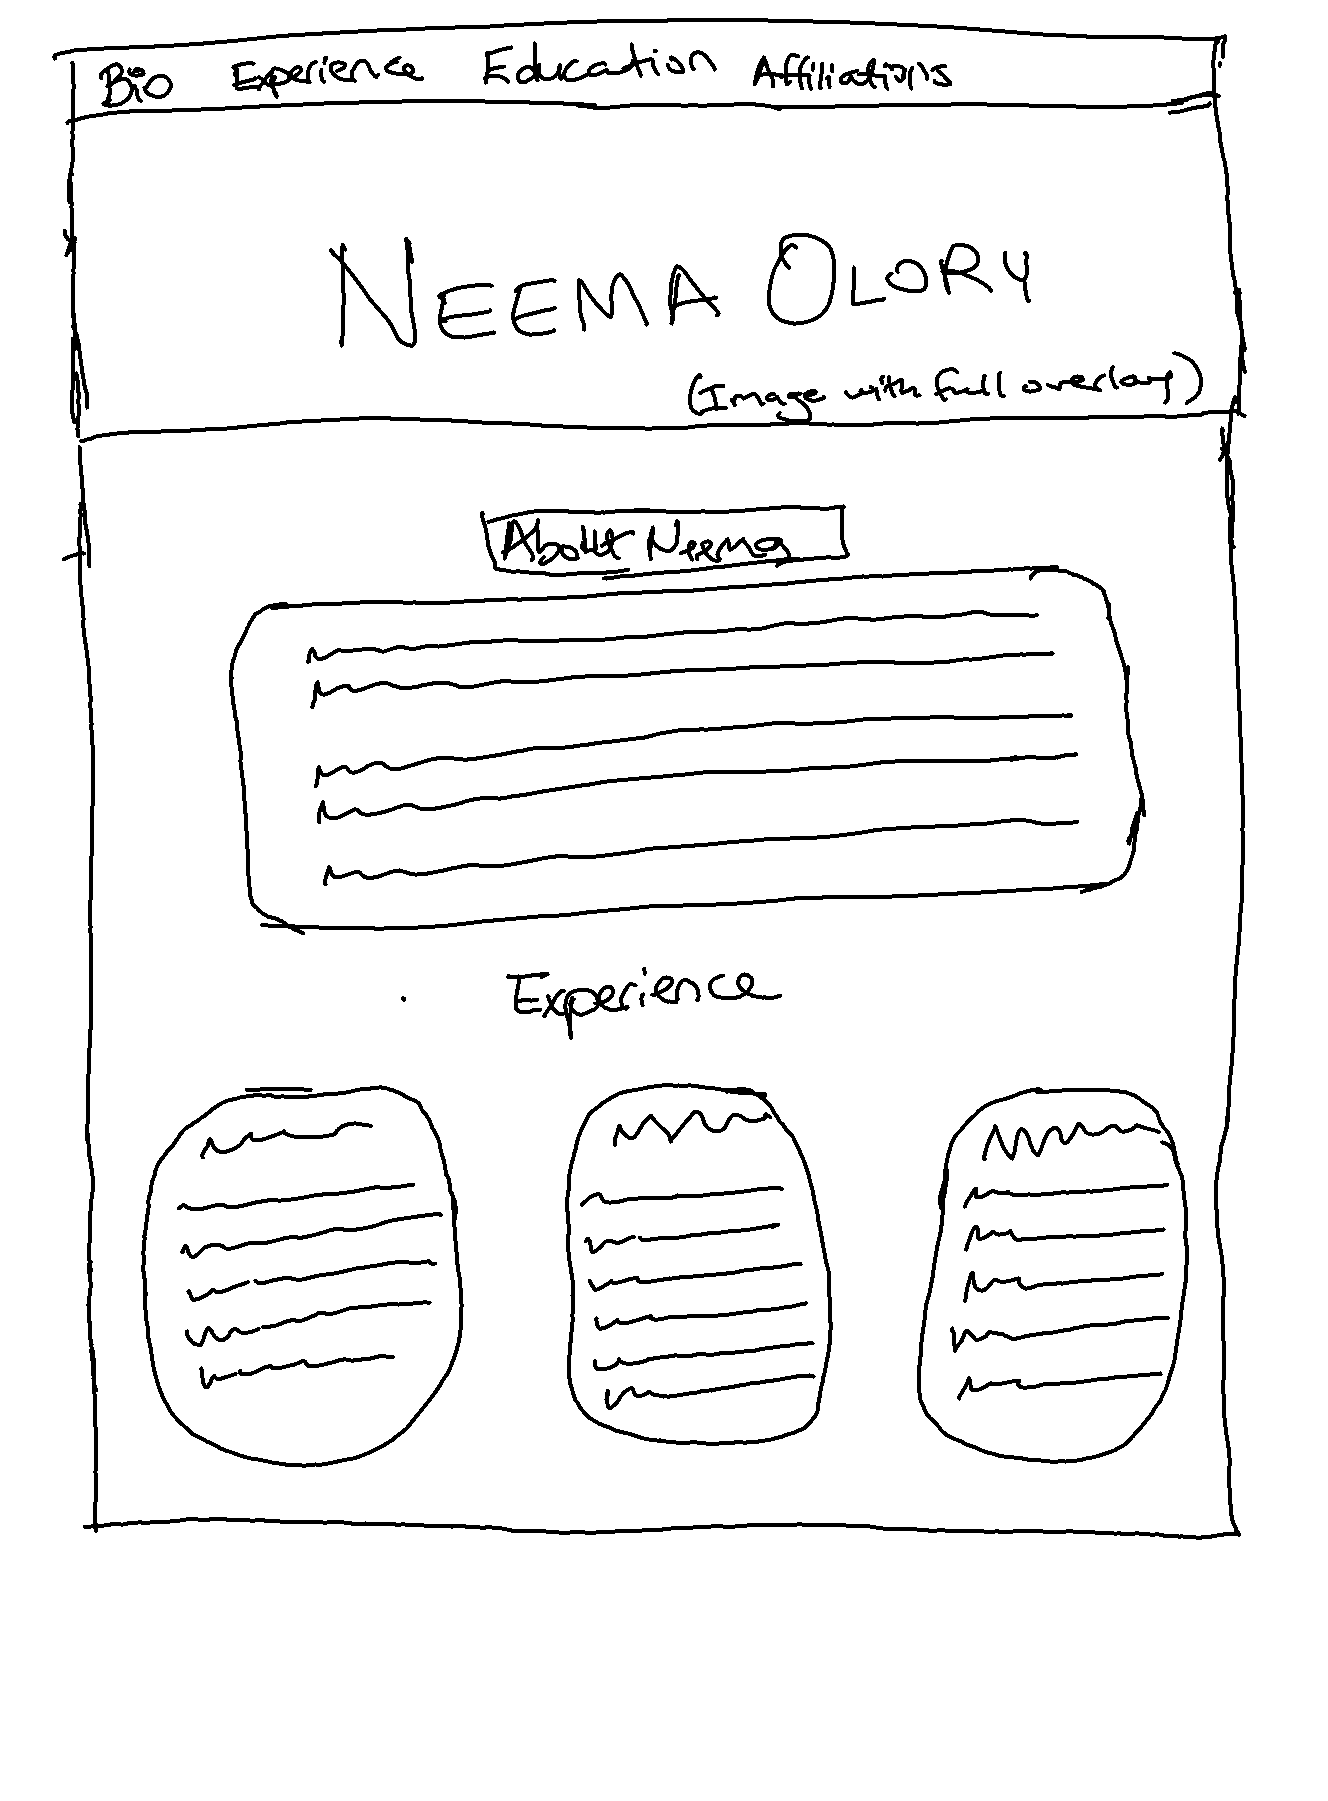 Bio Experience Education Affiliations
NEEMA OLORY
(Image with full overlay)
About Neema
Experience